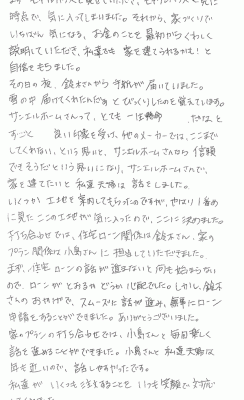 時点で、気に入ってしまいました。それから、家づくりで
いちばん気になる、お金のことを最初からくわしく
説明していただき、私達でも家を建てられるかな！と
自信をもちました。
その日の夜、鈴木さんから手紙が届いていました。
雪の中届けてくれたんだぁとびっくりしたのを覚えています。
サンエルホームさんって、とても一生懸命だなぁと
すごく良い印象を受け、他のメーカーでは、ここまで
してくれない、という思いと、サンエルホームさんなら信頼
できそうだという思いになり、サンエルホームさんで、
家を建てたいと私達夫婦は話をしました。
いくつか土地を案内してもらったのですが、やはり1番初め
に見たここの土地が気に入ったので、ここに決めました。
打ち合わせでは、住宅ローン関係は鈴木さん、家の
プラン関係は小島さんに担当していただきました。
まず、住宅ローンの話が進まないと何も始まらない
ので、ローンがとおるかどうか心配でした。しかし、鈴木
さんのおかげで、スムーズに話が進み、無事にローン
申請をすることができました。ありがとうございました。
家のプランの打ち合わせでは、小島さんと毎回楽しく
話を進めることができました。小島さんと私達夫婦は
年も近いので、話しやすかったです。
私達がいくつも注文することをいつも笑顔で対応